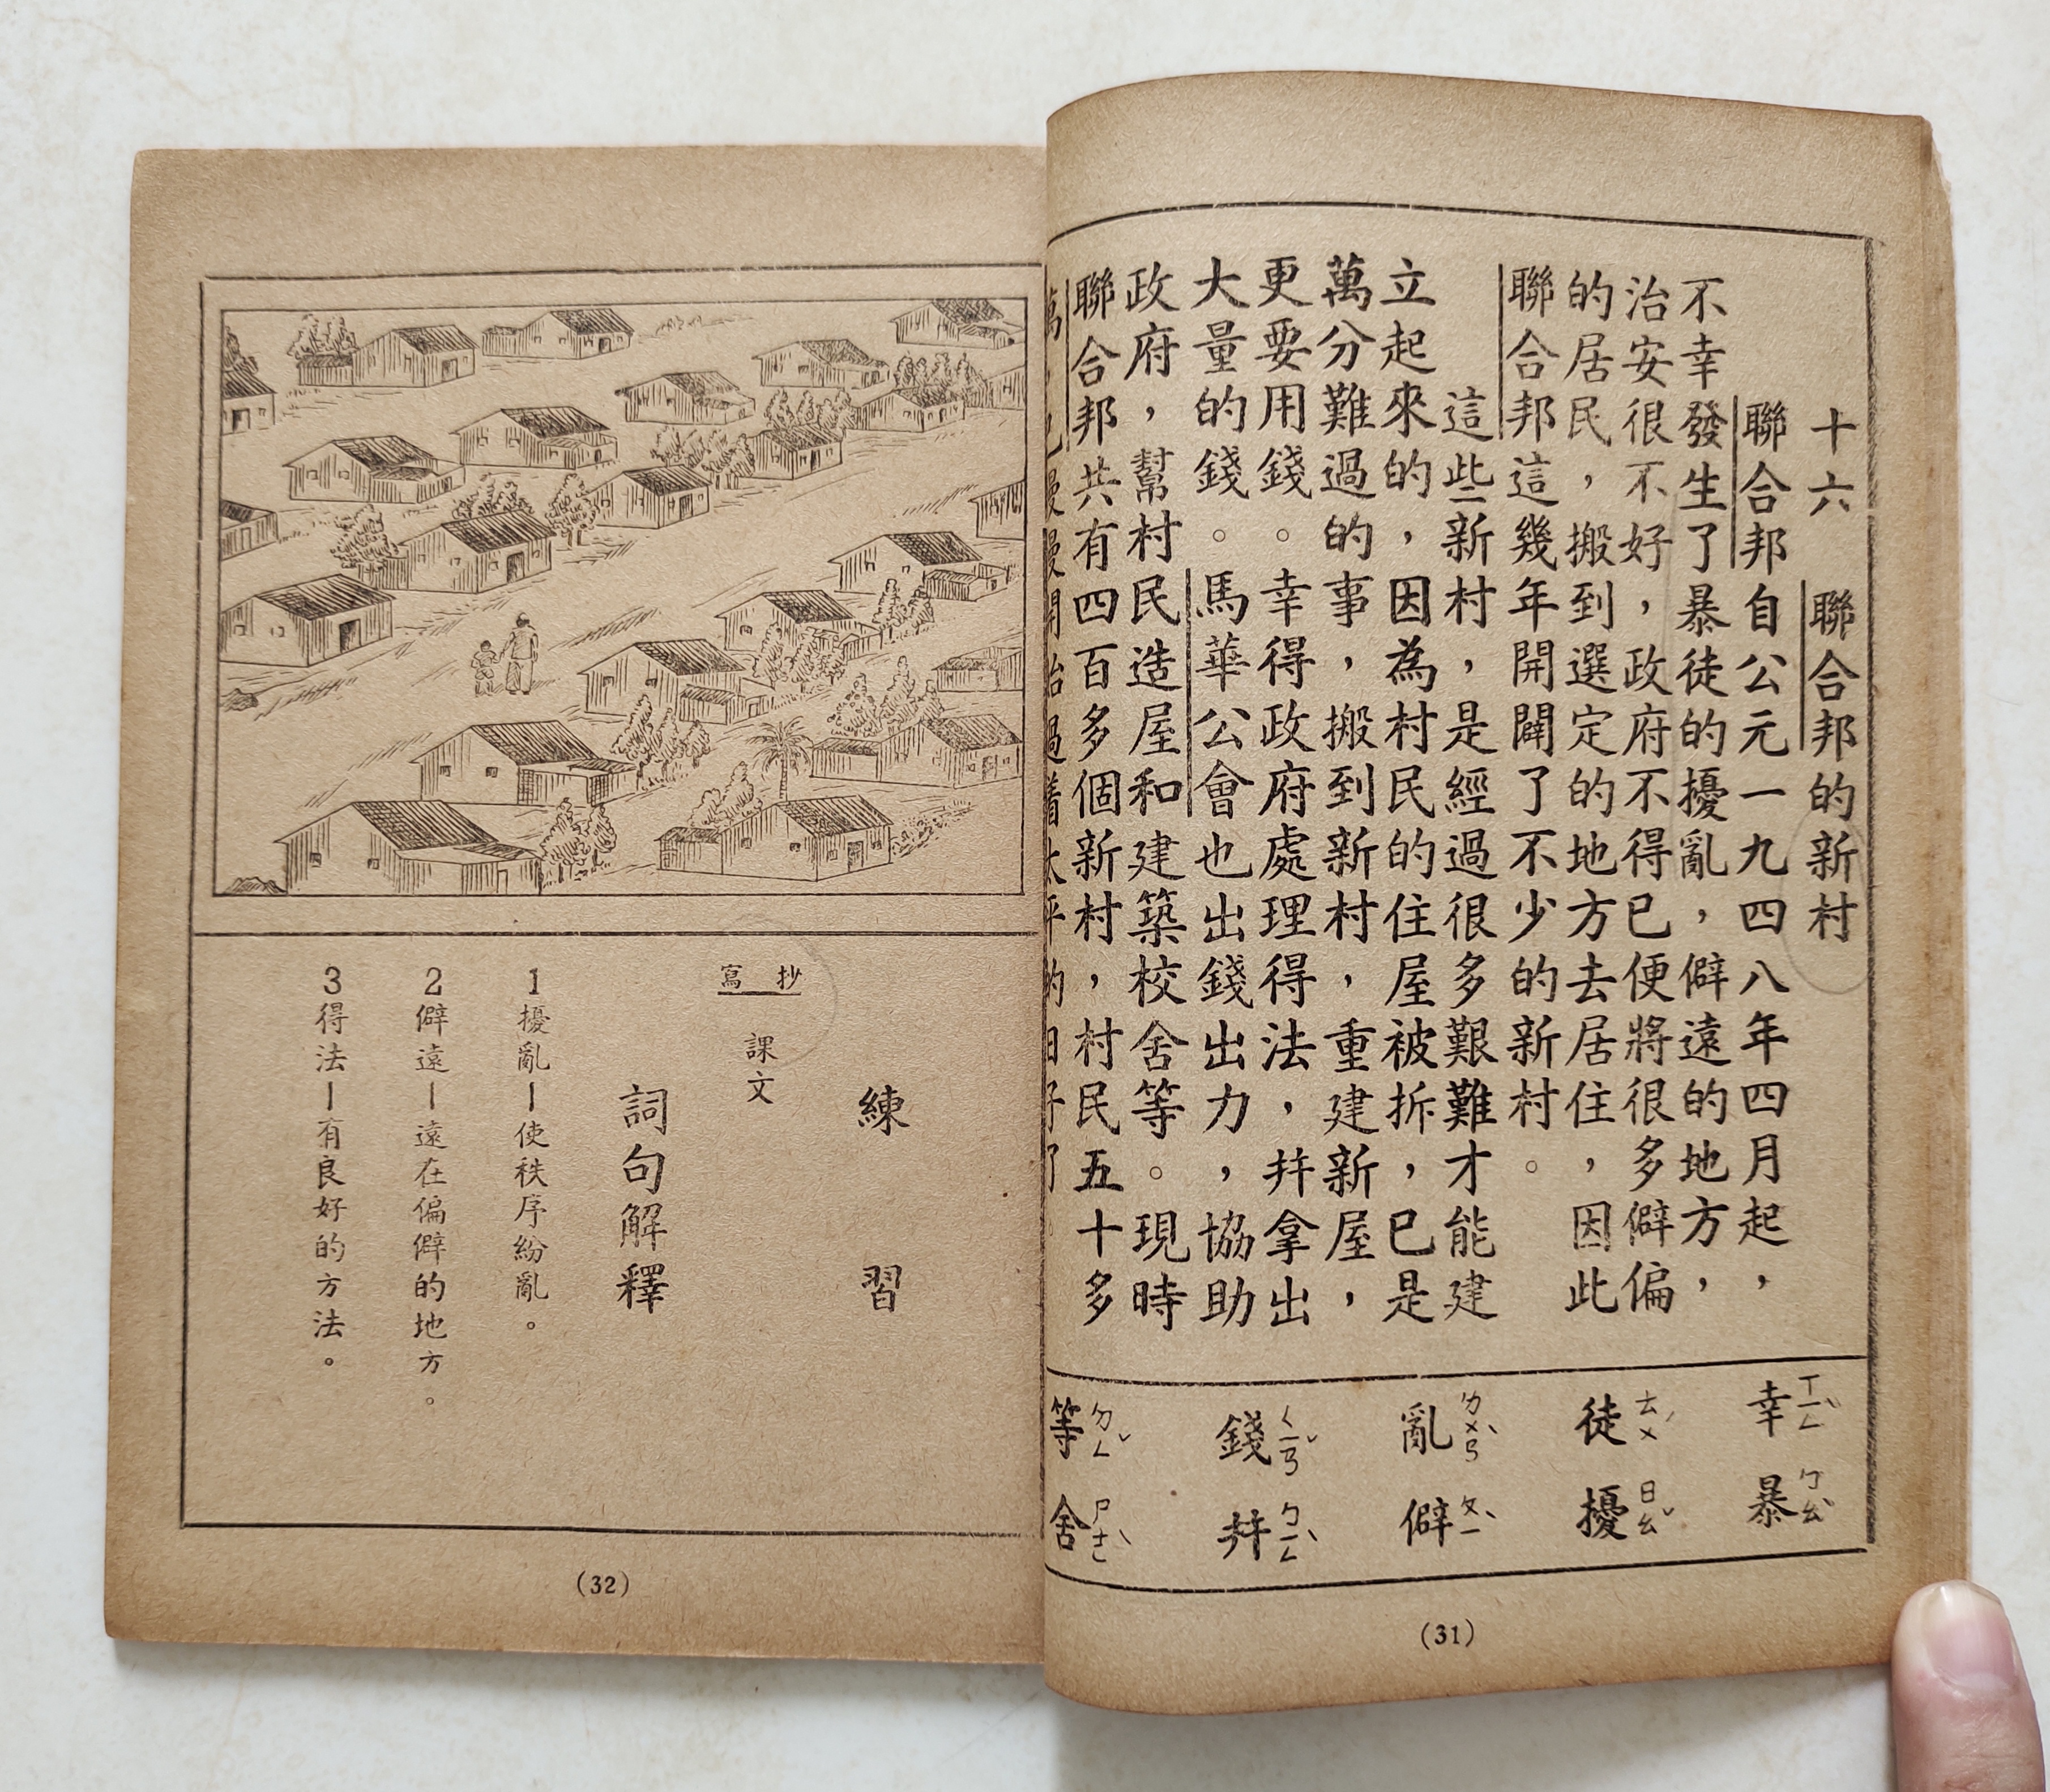 十六 聯合邦的新村
聯合邦自公元一九四八年四月起，
不幸發生了暴徒的擾亂，僻遠的地方，
治安很不好，政府不得已便將很多僻偏
的居民，搬到選定的地方去居住，因此
聯合邦這幾年開闢了不少的新村。
這些新村，是經過很多艱難才能建
立起來的，因為村民的住屋被拆，已是
萬分難過的事，搬到新村，重建新屋，
更要用錢。幸得政府處理得法，幷拿出
大量的錢。馬華公會也出錢出力，協助
政府，幫村民造屋和建築校舍等。現時
聯合邦共有四百多個新村，村民五十多
幸 ㄒㄧㄥˋ
暴 ㄅㄠˋ
徒 ㄊㄨˊ
擾 ㄖㄠˇ
亂 ㄌㄨㄢˋ
僻 ㄆㄧˋ
錢 ㄑㄧㄢˇ
幷 ㄅㄧㄥˋ
等 ㄉㄥˇ
舍 ㄕㄜˋ
(31)
練習
抄寫 課文
詞句解釋
1擾亂—使秩序紛亂。
2僻遠—遠在偏僻的地方。
3得法—有良好的方法。
(32)